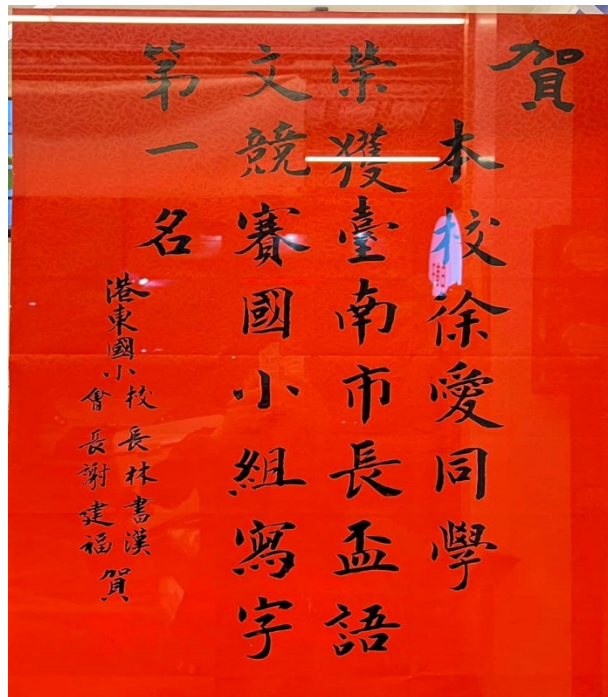 賀
本校徐愛同學
榮獲臺南市長盃語
文競賽國小組寫字
第一名
港東國小校長林書漢
會長謝建福
賀